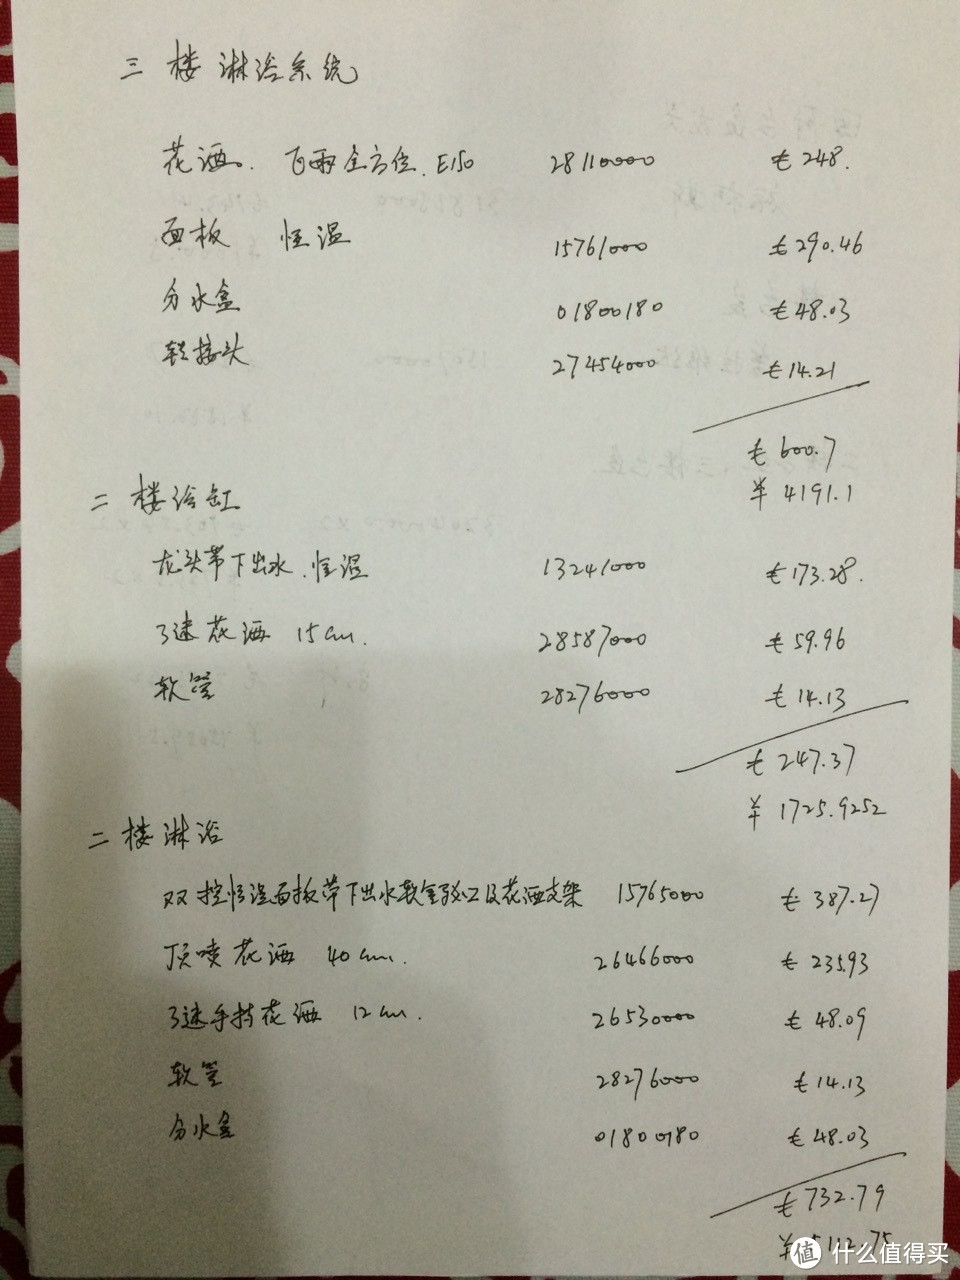 三楼淋浴系统
花洒. 飞雨全方位. E150 28110000 €248.
面板 恒温 15761000 €290.46
分水盒 01800180 €48.03
软接头 27454000 €14.21
€600.7
¥4191.1
二楼浴缸
龙头带下出水.恒温 13241000 €173.28.
3速花洒 15cm. 28587000 €59.96
软管 28276000 €14.13
€247.37
¥1725.9252
二楼淋浴
双控恒温面板带下出水软管接口及花洒支架 15765000 €387.27
顶喷花洒 40cm. 26466000 €235.93
3速手持花洒 12cm. 26530000 €48.09
软管 28276000 €14.13
分水盒 01800180 €48.03
€732.79
¥5112.75
值 什么值得买